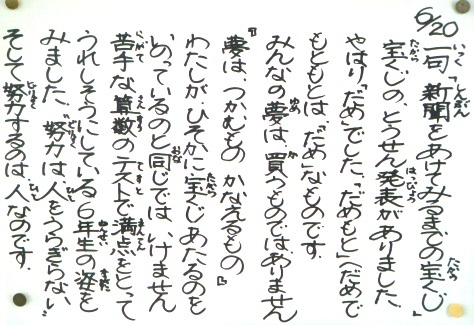 6/20 一句『新聞をあけてみるまでの宝くじ』
宝くじの、とうせん発表がありました。
やはり「だめ」でした。「だめもと」へだめで
もともとは、「だめ」なものです。
みんなの夢は、買うものではありません
『夢は、つかむもの かなえるもの』
わたしが、ひそかに宝くじあたるのを
いのっているのと同じでは、いけません
苦手な算数のテストで満点をとって
うれしそうにしている6年生の姿を
みました。"努力は人をうらぎらない"
そして努力するのは、人なのです。